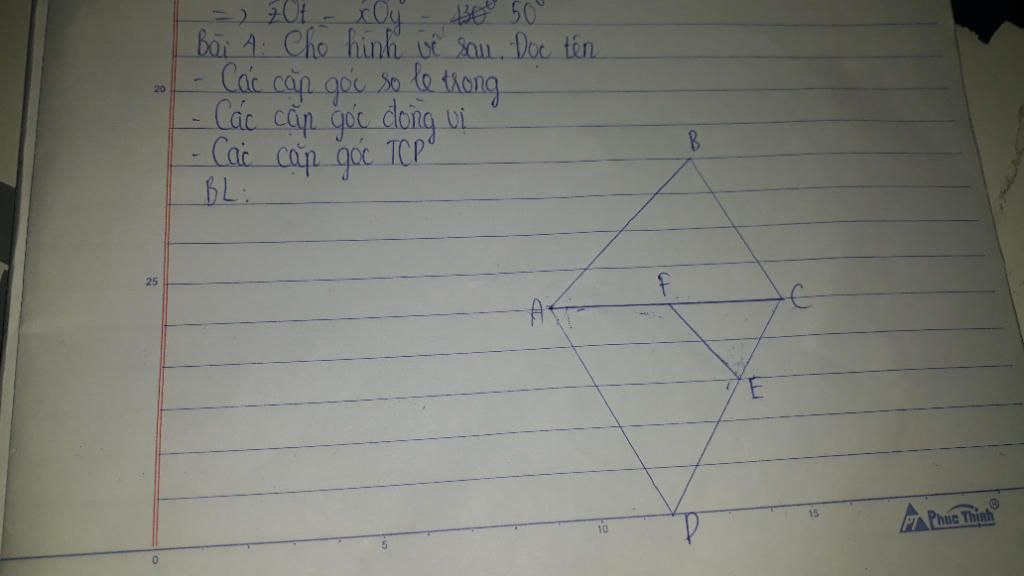 => zOt = xOy = 50°
Bài 4: Cho hình vẽ sau. Đọc tên
20
- Các cặp góc so le trong
- Các cặp góc đồng vị
- Các cặp góc TCP
BL:
B
25
A
F
C
E
D
0
5
10
15
Phuc Thinh®